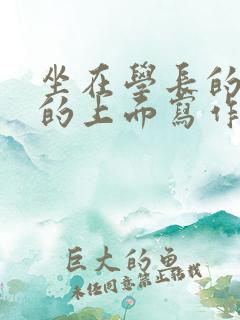 坐在學長的
的上面寫作
巨大的魚
未经同意禁止转载